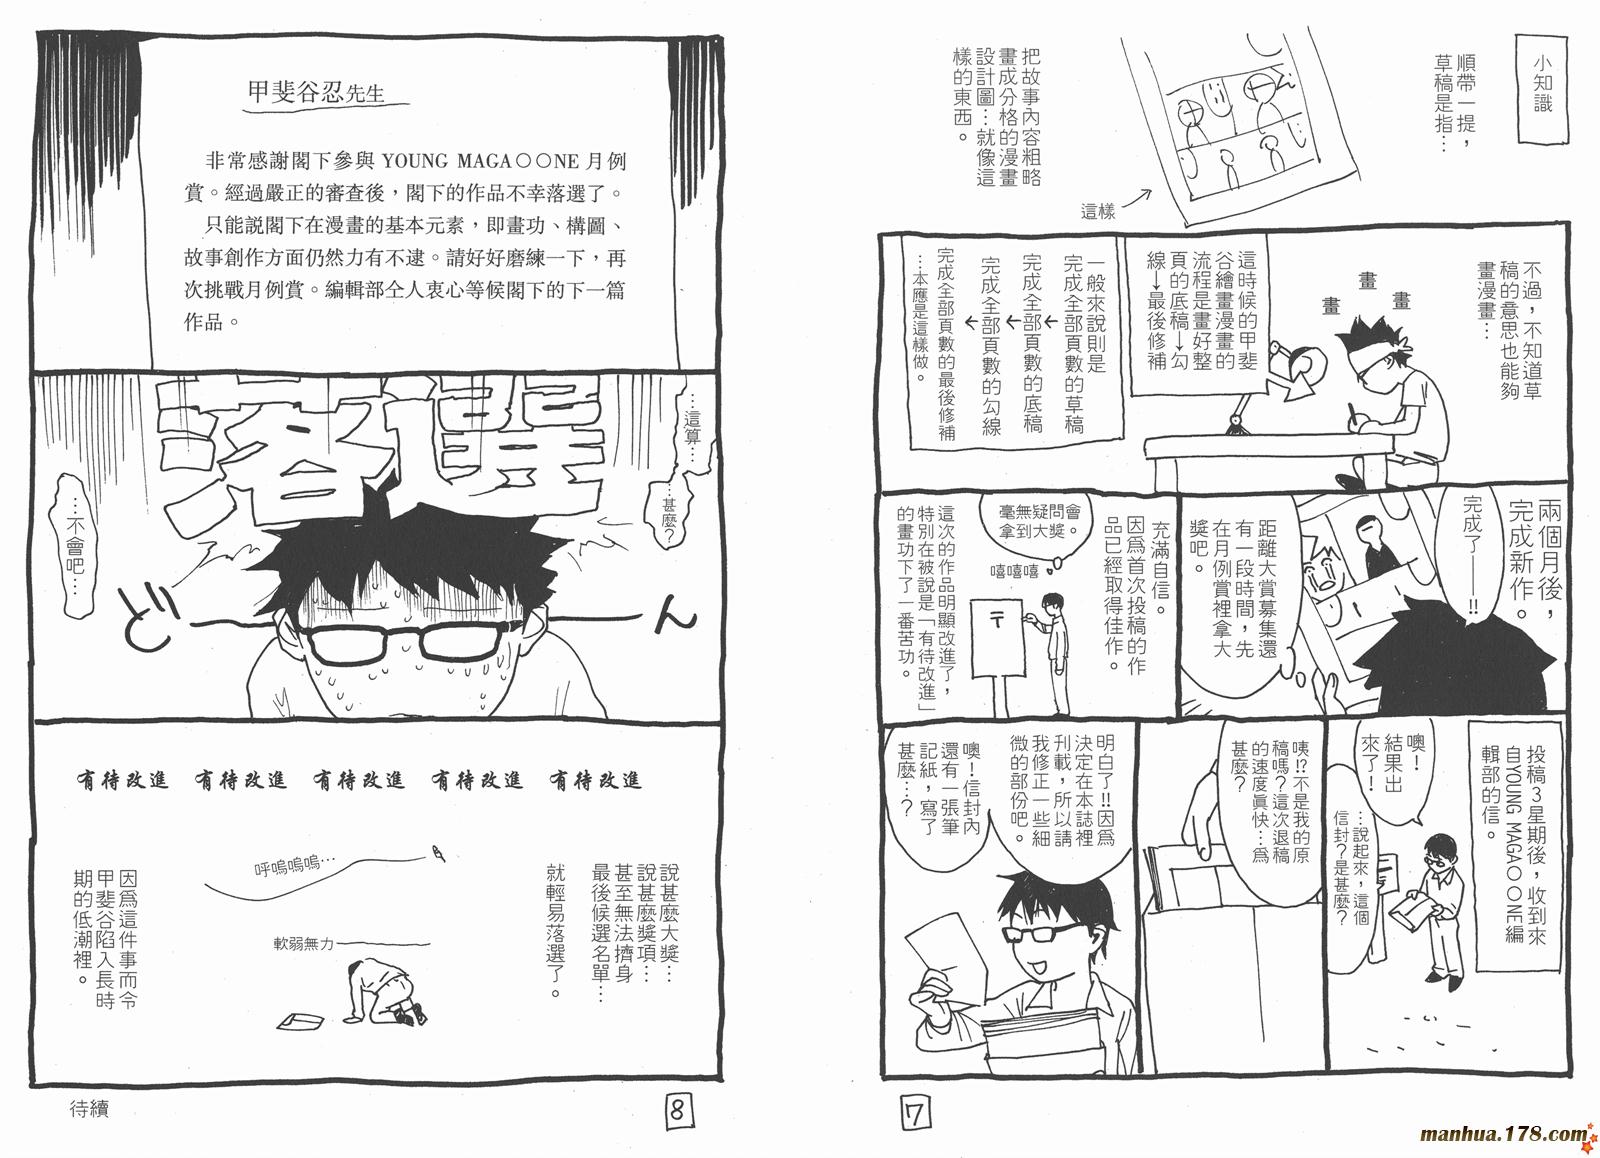 小知識
順帶一提，
草稿是指…
把故事內容粗略
畫成分格的漫畫
設計圖…就像這
樣的東西。
這樣
不過，不知道草
稿的意思也能夠
畫漫畫…
畫
畫
畫
這時候的甲斐
谷繪畫漫畫的
流程是畫好整
頁的底稿→勾
線→最後修補
一般來說則是
完成全部頁數的草稿
↓
完成全部頁數的底稿
↓
完成全部頁數的勾線
↓
完成全部頁數的最後修補
…本應是這樣做。
兩個月後，
完成新作。
完成了——!!
距離大賞募集還
有一段時間，先
在月例賞裡拿大
獎吧。
充滿自信。
因爲首次投稿的作
品已經取得佳作。
毫無疑問會
拿到大獎。
嘻嘻嘻
〒
這次的作品明顯改進了，
特別在被說是「有待改進」
的畫功下了一番苦功。
投稿3星期後，收到來
自YOUNG MAGA○○NE編
輯部的信。
噢！
結果出
來了！
…說起來，這個
信封？是甚麼？
咦!?不是我的原
稿嗎？這次退稿
的速度眞快…爲
甚麼？
明白了!!因爲
決定在本誌裡
刊載，所以請
我修正一些細
微的部份吧。
噢！信封內
還有一張筆
記紙，寫了
甚麼…？
7
甲斐谷忍先生
非常感謝閣下參與 YOUNG MAGA○○NE 月例
賞。經過嚴正的審查後，閣下的作品不幸落選了。
只能說閣下在漫畫的基本元素，即畫功、構圖、
故事創作方面仍然力有不逮。請好好磨練一下，再
次挑戰月例賞。編輯部仝人衷心等候閣下的下一篇
作品。
落選
…這算…
…甚麼？
…不會吧…
ど
ん
有待改進 有待改進 有待改進 有待改進 有待改進
說甚麼大獎…
說甚麼獎項…
甚至無法擠身
最後候選名單…
就輕易落選了。
呼嗚嗚嗚…
軟弱無力
因爲這件事而令
甲斐谷陷入長時
期的低潮裡。
待續
8
manhua.178.com